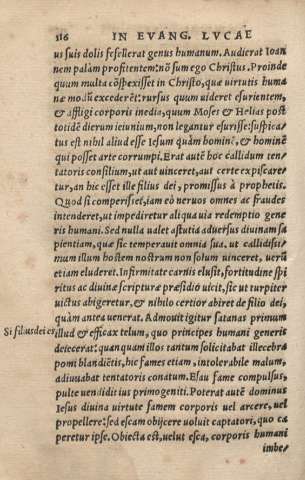 116 IN EVANG. LVCAE
us suis dolis fefellerat genus humanum. Audierat Ioan
nem palàm profitentem: nō sum ego Christus. Proinde
quum multa cōspexisset in Christo, quæ uirtutis huma
næ modū excederēt: rursus quum uideret esurientem,
& affligi corporis inedia, quum Moses & Helias post
totidē dierum ieiunium, non legantur esurisse: suspica-
tus est nihil aliud esse Iesum quàm hominē, & hominē
qui posset arte corrumpi. Erat autē hoc callidum ten-
tatoris consilium, ut aut uinceret, aut certe expiscare-
tur, an hic esset ille filius dei, promissus à prophetis.
Quod si comperisset, iam eò neruos omnes ac fraudes
intenderet, ut impediretur aliqua uia redemptio gene
ris humani. Sed nulla ualet astutia aduersus diuinam sa
pientiam, quæ sic temperauit omnia sua, ut callidissi-
mum illum hostem nostrum non solum uinceret, uerū
etiam eluderet. Infirmitate carnis elusit, fortitudine spi
ritus ac diuinæ scripturæ præsidio uicit, sic ut turpiter
uictus abigeretur, & nihilo certior abiret de filio dei,
quàm antea uenerat. Admouit igitur satanas primum
Si filius dei es
illud & efficax telum, quo principes humani generis
deiecerat: quanquam illos tantum solicitabat illecebra
pomi blandiētis, hic fames etiam, intolerabile malum,
adiuuabat tentatoris conatum. Esau fame compulsus,
pulte uendidit ius primogeniti. Poterat autē dominus
Iesus diuina uirtute famem corporis uel arcere, uel
propellere: sed escam obijcere uoluit captatori, quo ca
peretur ipse. Obiecta est, uelut esca, corporis humani
imbe-